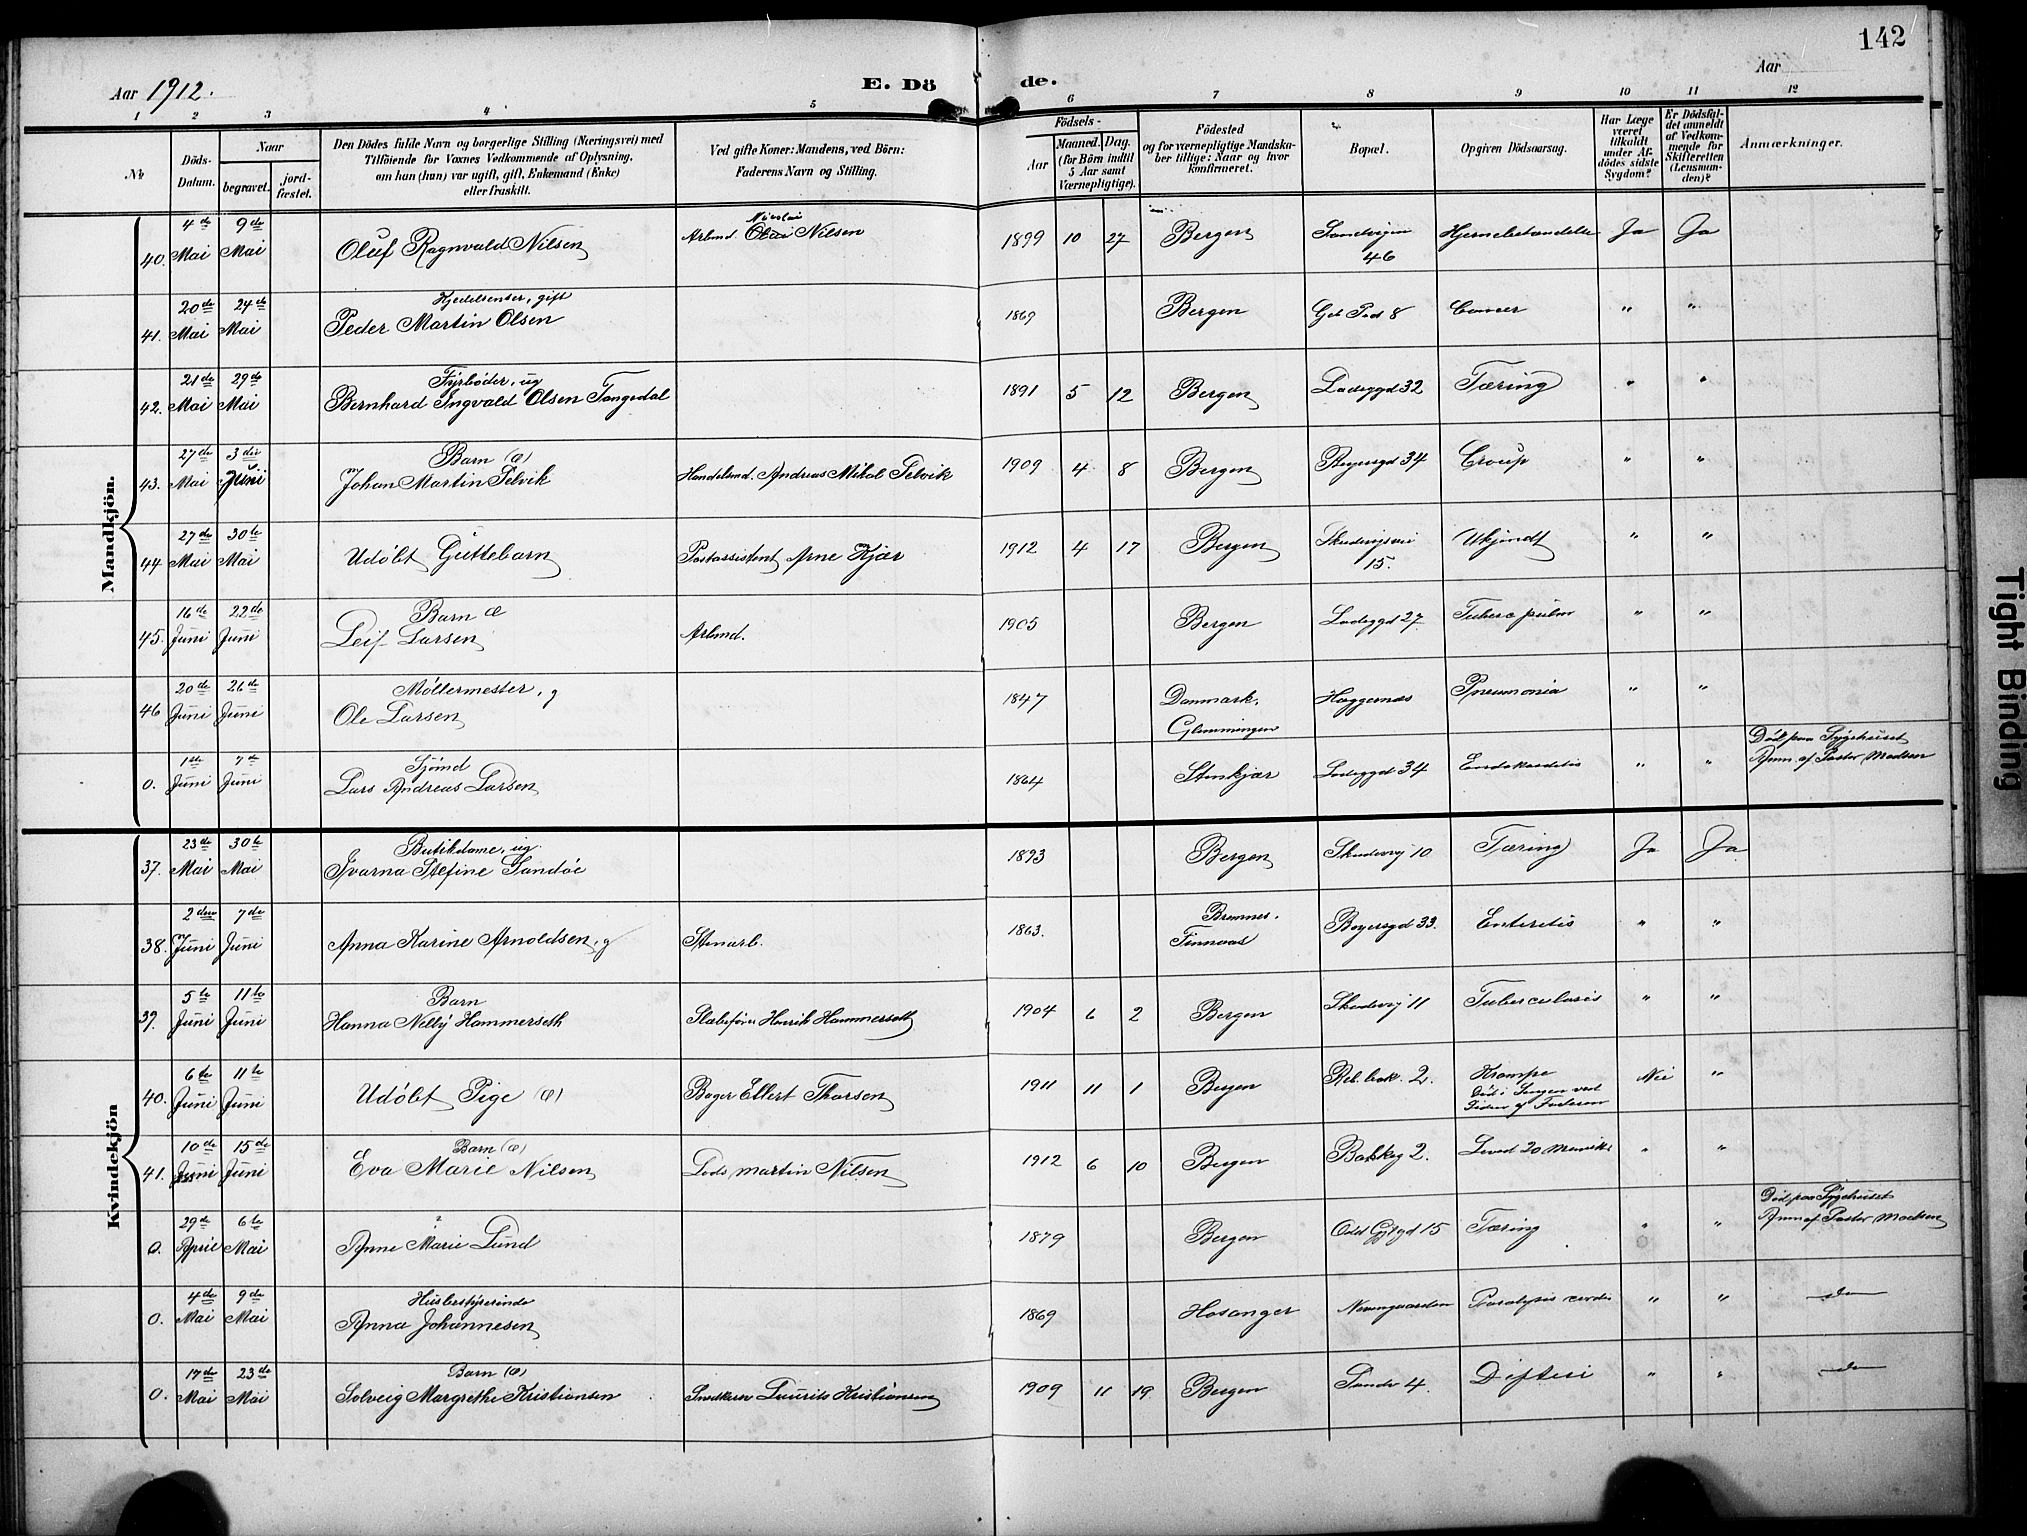 142
Aar 1912.
E. Döde.
Aar
1 2 3 4 5 6 7 8 9 10 11 12
No
Döds-Datum.
Naar
begravet.
jord-fæstet.
Den Dödes fulde Navn og borgerlige Stilling (Næringsvei) med
Tilföiende for Voxnes Vedkommende af Oplysning,
om han (hun) var ugift, gift, Enkemand (Enke)
eller fraskilt.
Ved gifte Koner: Mandens, ved Börn:
Faderens Navn og Stilling.
Födsels-
Aar
Maaned. Dag.
(for Börn indtil
5 Aar samt
Værnepligtige).
Födested
og for værnepligtige Mandska-
ber tillige: Naar og hvor
konfirmeret.
Bopæl.
Opgiven Dödsaarsag.
Har Læge
været
tilkaldt
under Af-
dödes sidste
Sygdom?
Er Dödsfal-
det anmeldt
af Vedkom-
mende for
Skifteretten
(Lensman-
den)?
Anmærkninger.
Mandkjön.
40. 4de Mai 9de Mai Oluf Ragnvald Nilsen Arbmd. Nicolai Nilsen 1899 10 27 Bergen Sandvigen 46 Hjernebetændelse Ja Ja
41. 20de Mai 24de Mai Kjedelrenser, gift
Peder Martin Olsen 1869 Bergen 8 Cancer " "
42. 21de Mai 29de Mai Fyrbøder, ug
Bernhard Ingvald Olsen Tangedal 1891 5 12 Bergen Ladeggd 32 Tæring " "
43. 27de Mai 3die Juni Barn (Æ)
Johan Martin Selvik Handelsmd. Andreas Mikal Selvik 1909 4 8 Bergen Bøyersgd 34 Croup " "
44 27de Mai 30te Mai Udøbt Guttebarn Postassistent Arne Kjær 1912 4 17 Bergen Skudevigsvei 15. Ukjendt " "
45. 16de Juni 22de Juni Barn Æ
Leif Larsen Arbmd. 1905 Bergen Ladeggd 27 Tuberc pulm " "
46 20de Juni 26de Juni Møllermester, g
Ole Larsen 1847 Danmark. Glemmingen Hæggernæs Pneumonia " "
0. 1ste Juni 7de Juni Sjømd
Lars Andreas Larsen 1864 Stenkjær Ladeggd 34 Endokarditis " " Død paa Sygehuset
Anm. af Pastor Madsen
Kvindekjön
37. 23de Mai 30te Mai Butikdame, ug.
Ivarna Stefine Sandøe 1893 Bergen Skudevig 10 Tæring Ja Ja
38. 2den Juni 7de Juni Anna Karine Arnoldsen, g Stenarb. 1863. Bremnes. Finnaas Bøyersgd 33. Enteritis " "
39. 5te Juni 11te Juni Barn
Hanna Nelly Hammerseth Slæbefører Henrik Hammerseth 1904 6 2 Bergen Skudevig 11 Tuberculosis " "
40. 6te Juni 11te Juni Udøbt Pige (Æ) Bager Ellert Thorsen 1911 11 1 Bergen Reb. bak. 2. Krampe
Død i Sengen ved
Siden af Faderen Nei "
41. 10de Juni 15de Juni Barn (Æ)
Eva Marie Nilsen Lods Martin Nilsen 1912 6 10 Bergen Bakkeg 2. Leved 20 Minutter " "
0. 29de April 6te Mai Anne Marie Lund 1879 Bergen 15 Tæring " " Død paa Sygehuset
Anm af Pastor Madsen
0. 4de Mai 9de Mai Husbestyrerinde
Anna Johannesen 1869 Hosanger Nevengaarden Paralysis cordis " " do
0. 17de Mai 23de Mai Barn (Æ)
Solveig Margrethe Kristiansen Snedkersv Laurits Kristiansen 1909 11 19. Bergen Sandv 4. Difteri " " do
Tight Binding